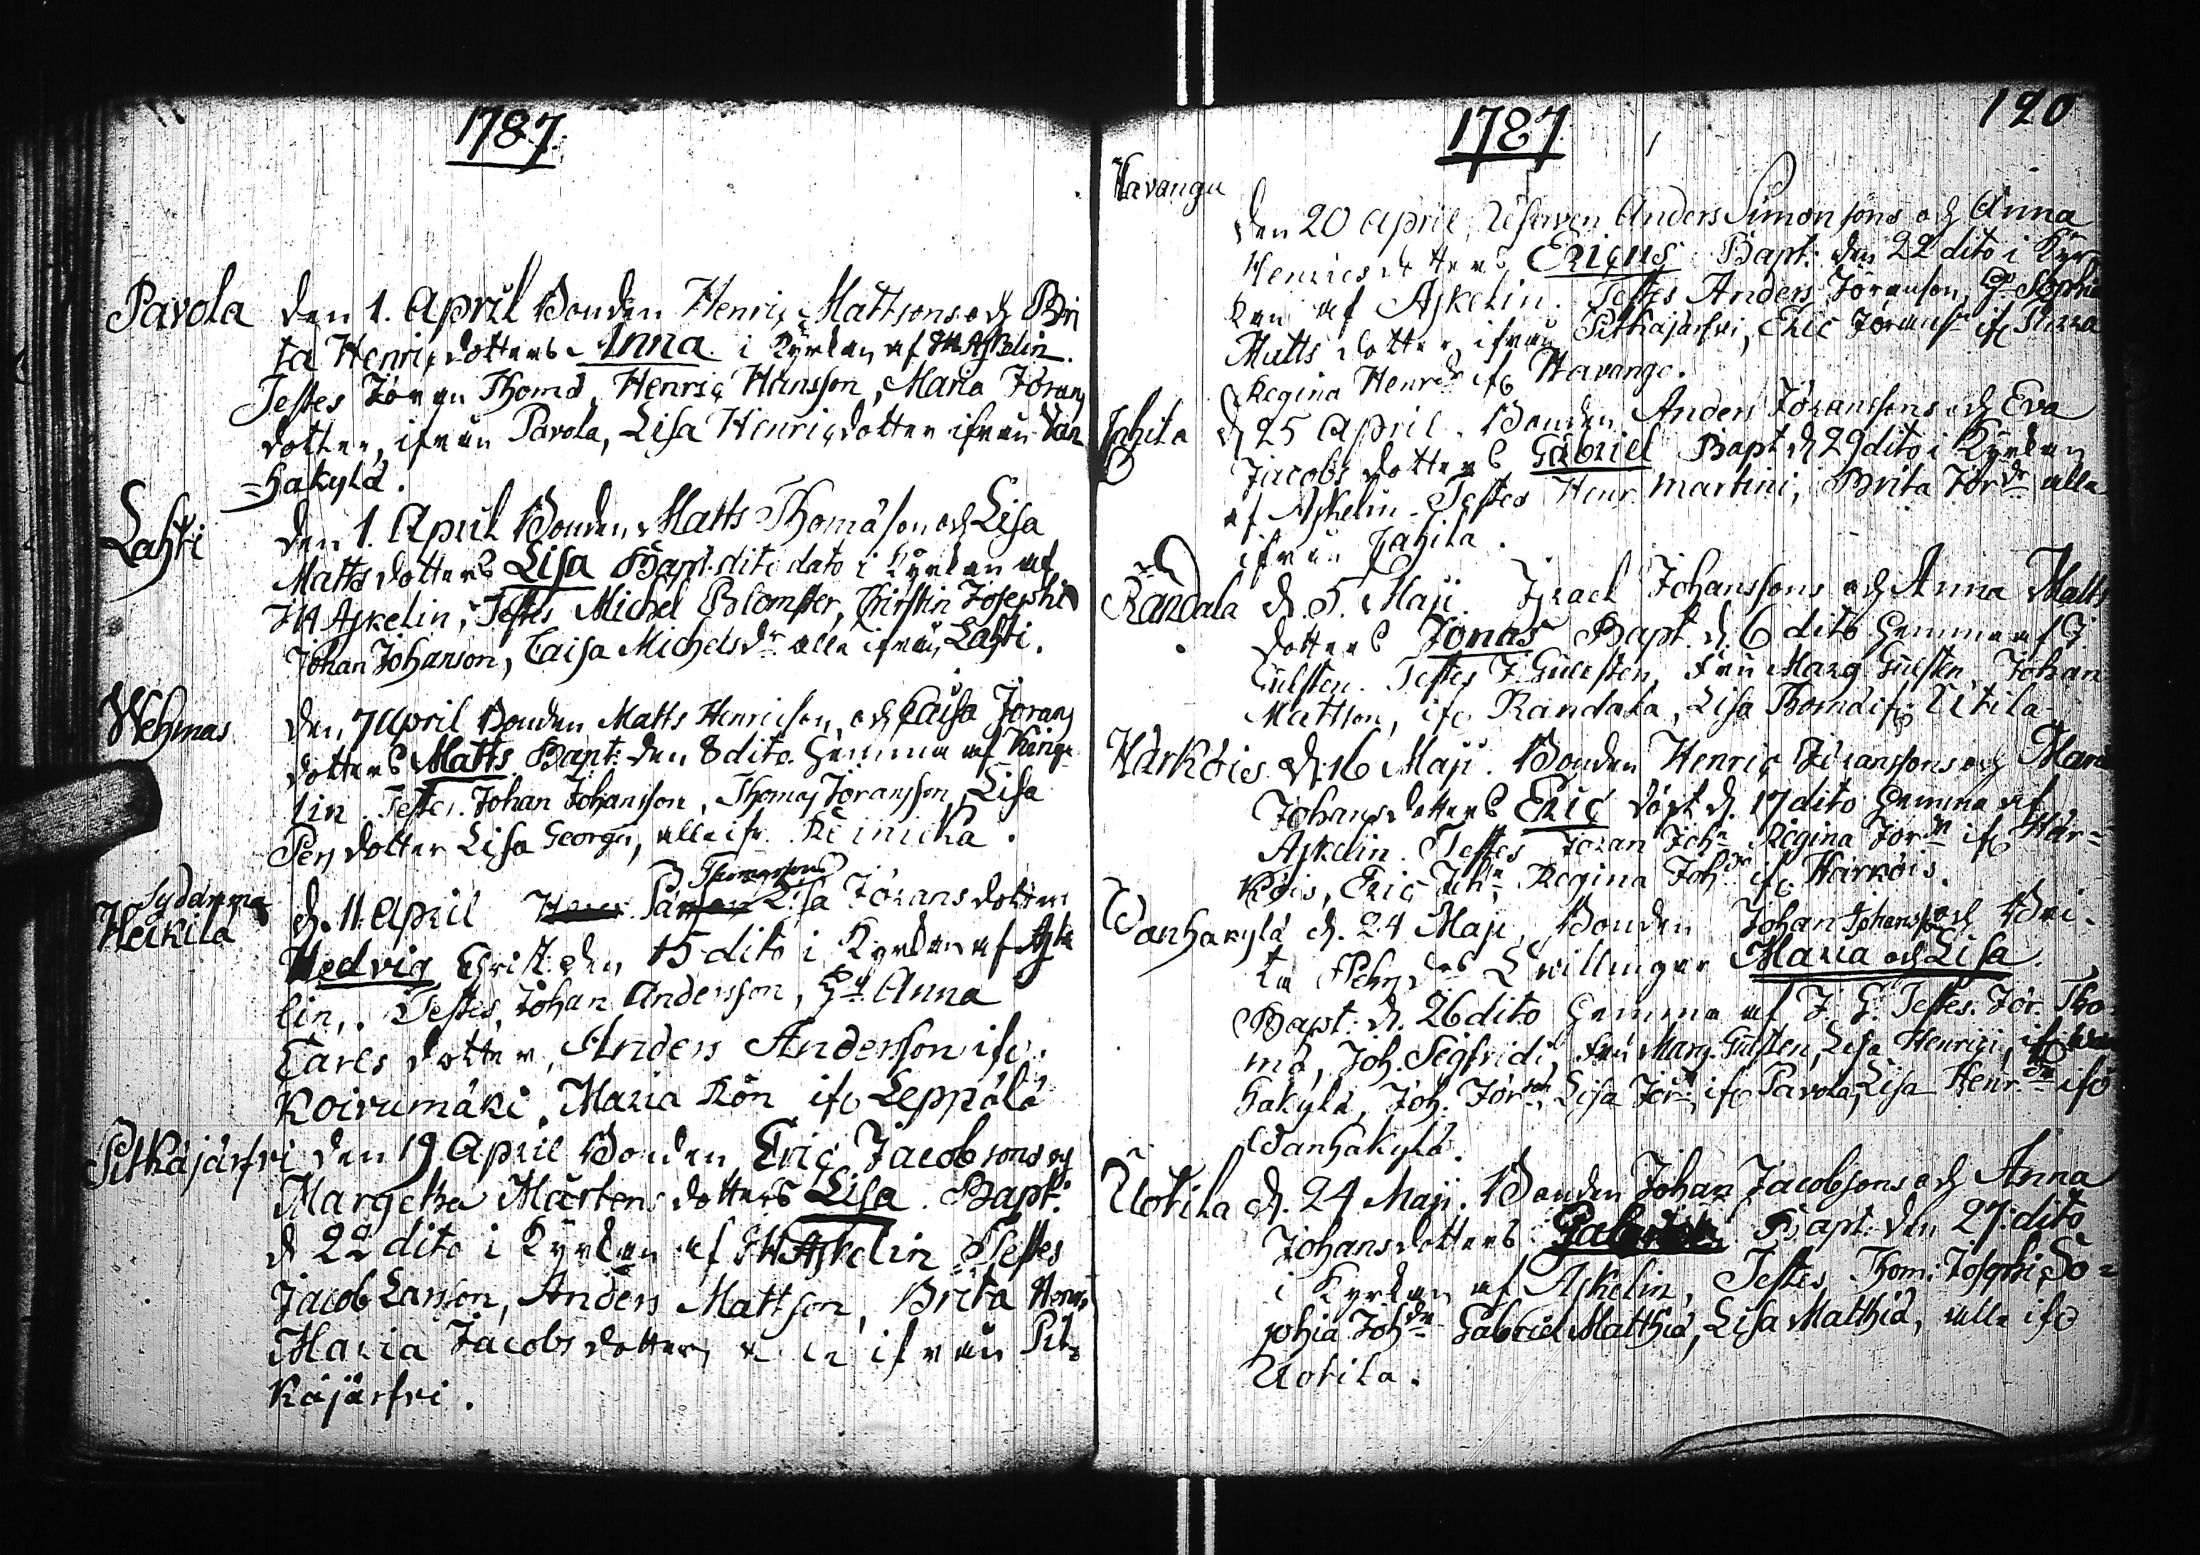 1787.
Pavola Den 1. April Bonden Henric Mattsons och Bri
ta Henricsdotters Anna i Kyrkan af JH Askelin.
Testes Jöran Thomæ, Henric Hansson, Maria Jörans
dotter, ifrån Pavola, Lisa Henricsdotter ifrån Van
=hakylä.
Lahti Den 1. April Bonden Matts Thomason och Lisa
Matts dotters Lisa Bapt. dito dato i Kyrkan af
JH Askelin, Testes Michel Blomster, Kirstin Josephi
Johan Johanson, Caisa Michelsdr alla ifrån Lahti.
Wehmas Den 7 April Bonden Matts Henricson och Caisa Jörans
dotters Matts Bapt: den 8 dito hemma af King-
lin. Testes. Johan Johansson, Thomas Joransson, Lisa
Pers dotter Lisa Georgii, alla ifr. Reinika.
Sydänma
Heikilä d. 11. April Thomassons Lisa Jöransdotter
Hedvig Christ: den 15 dito i Kyrkan af Aske
lin,. Testes, Johan Andersson, Anna
Carls dotter, Anders Andersson ifr.
Koivumäki, Maria Rön ifr Leppälä
Pitkäjärfvi Den 19 April Bonden Eric Jacobsons och
Margetha Mårtens dotters Lisa. Bapt:
d 22 dito i Kyrkan af JH Askelin Testes
Jacob Larsson, Anders Mattson, Brita Henr:
Maria Jacobs dotter, alla ifrån Pit
käjärfvi.
1787 120
Havangu
Den 20 April, Anders Simonsons och Anna
Henricsdotters Ericus Bapt: den 22 dito i Kyr
kan af Askelin. Testes Anders Joranson, Sophia
Matts dotter ifrån Pitkäjärfvi, Eric Joranss: ifr
Regina Henrdr ifr Havango.
Jahila d 25 April. Bonden Anders Joranssons och Eva
Jacobs dotters Gabriel Bapt d 29 dito i Kyrkan
af Askelin. Testes Henr. Martini, Brita Jördr alla
ifrån Jahila.
Rändälä d. 5. Maji. Israel Johanssons och Anna Matts
dotters Jonas Bapt. d. 6 dito hemma af J.
Gulsten. Testes J. Gulsten, Fru Marg Gulsten, Johan
Mattson, ifr Rändälä, Lisa Thomæ ifr Utila
Härköis d. 16 Maji. Bonden Henric Joranssons och Maria
Johans dotters Eric döpt d. 17 dito hemma af
Askelin. Testes Joran Joh: Regina Jördr ifr Här=
köis, Eric Joh: Regina Johdr ifr Härköis.
Vanhakylä d. 24 Maji, Bonden Johan Johanss och Bri-
ta Pehrsdrs Twillingar Maria och Lisa.
Bapt: d. 26 dito hemma af J. G. Testes. Jör. Tho-
mæ, Joh. Segfridi, Fru Marg. Gulsten, Lisa Henrici,
hakylä, Joh. Jörson, Lisa Jördr, ifr Pavola, Lisa Henrdr ifr
Vanhakylä.
Uotila d. 24 Maji. Bonden Johan Jacobsons och Anna
Johansdotters Bapt: den 27 dito
i Kyrkan af Askelin, Testes Thom: Josephi, So=
phia Johdr Gabriel Matthiæ, Lisa Matthiæ, alla ifr
Uotila.